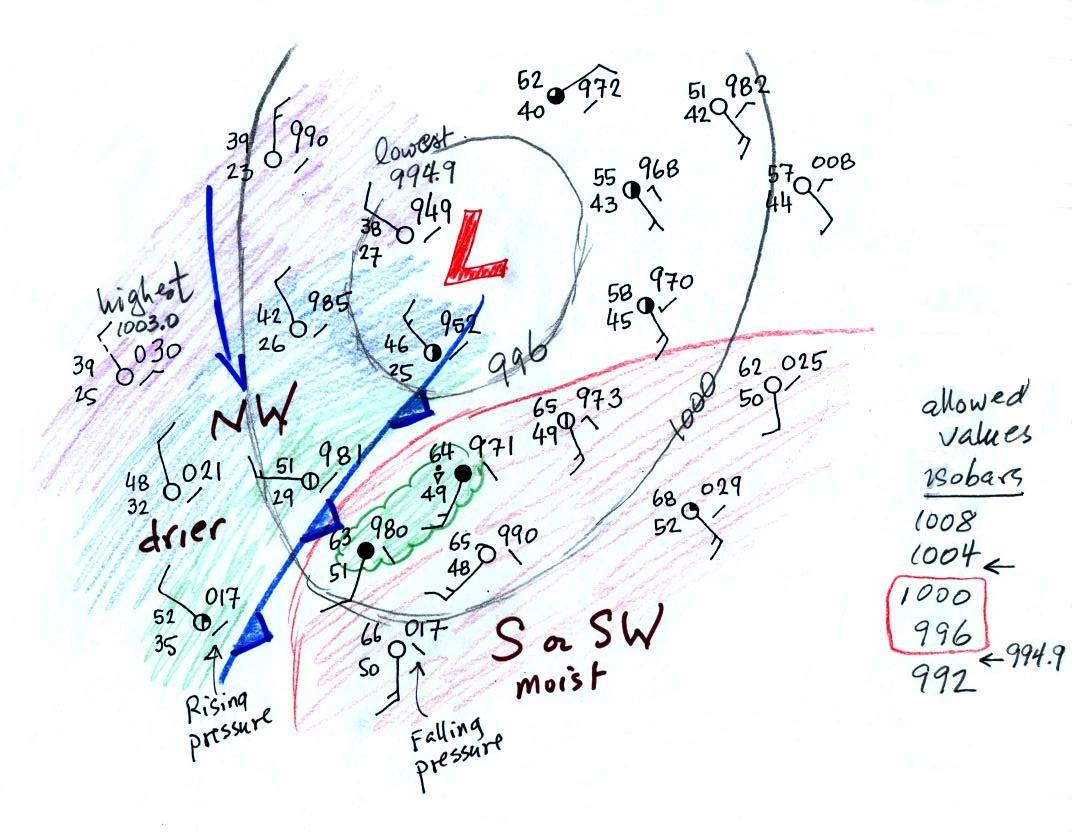 52 972
40
51 982
42
39 990
23
lowest
994.9
38 949
27
L
55 968
43
57 008
44
highest
1003.0
39 030
25
42 985
26
46 952
25
996
58 970
45
62 025
50
1000
NW
65 973
49
64 971
49
51 981
29
48 021
32
drier
68 029
52
63 980
51
65 990
48
52 017
35
66 017
50
S or SW
moist
Rising
pressure
Falling
pressure
allowed
values
isobars
1008
1004 ←
1000
996
←994.9
992